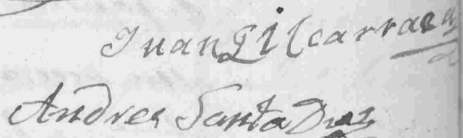 Juan Gil carrasa
Andres Santa Druz